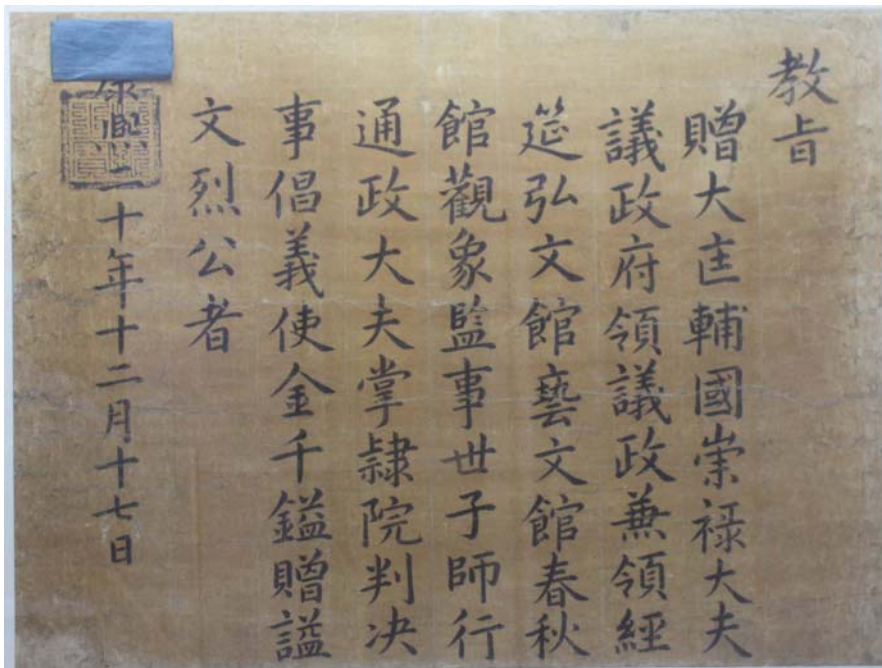 教旨
贈大匡輔國崇祿大夫
議政府領議政兼領經
筵弘文館藝文館春秋
館觀象監事世子師行
通政大夫掌隷院判决
事倡義使金千鎰贈謚
文烈公者
康熙二十年十二月十七日